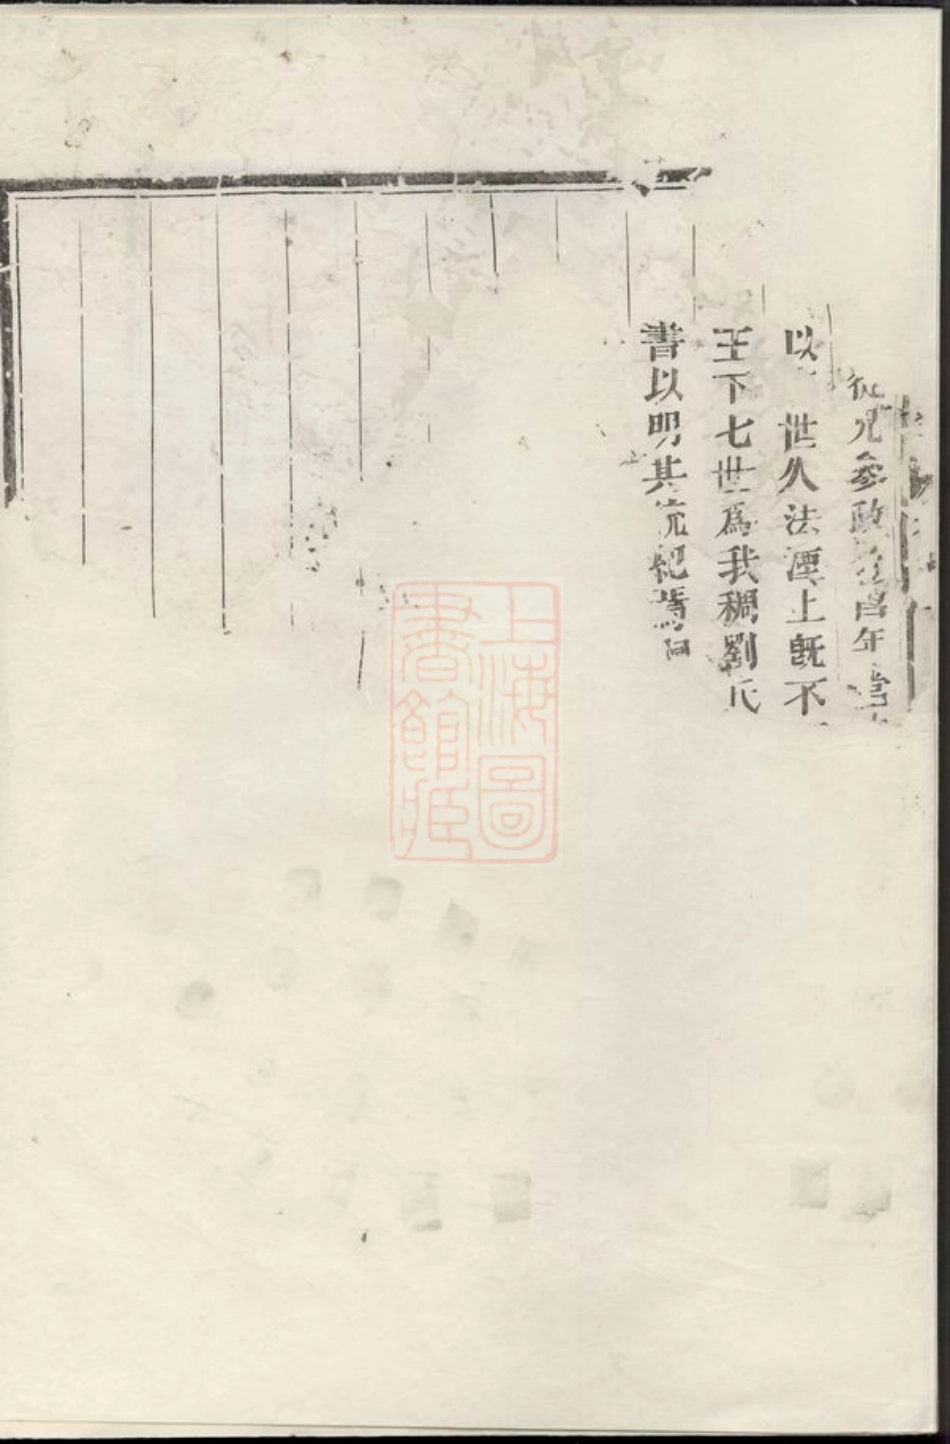 從兄參政昌年
以世久法湮上旣不
王下七世爲我稠劉氏
書以明其統紀焉
上海圖書館藏